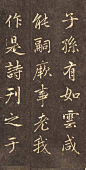 子孫有如雲咸
能嗣厥事老我
作是詩刊之于